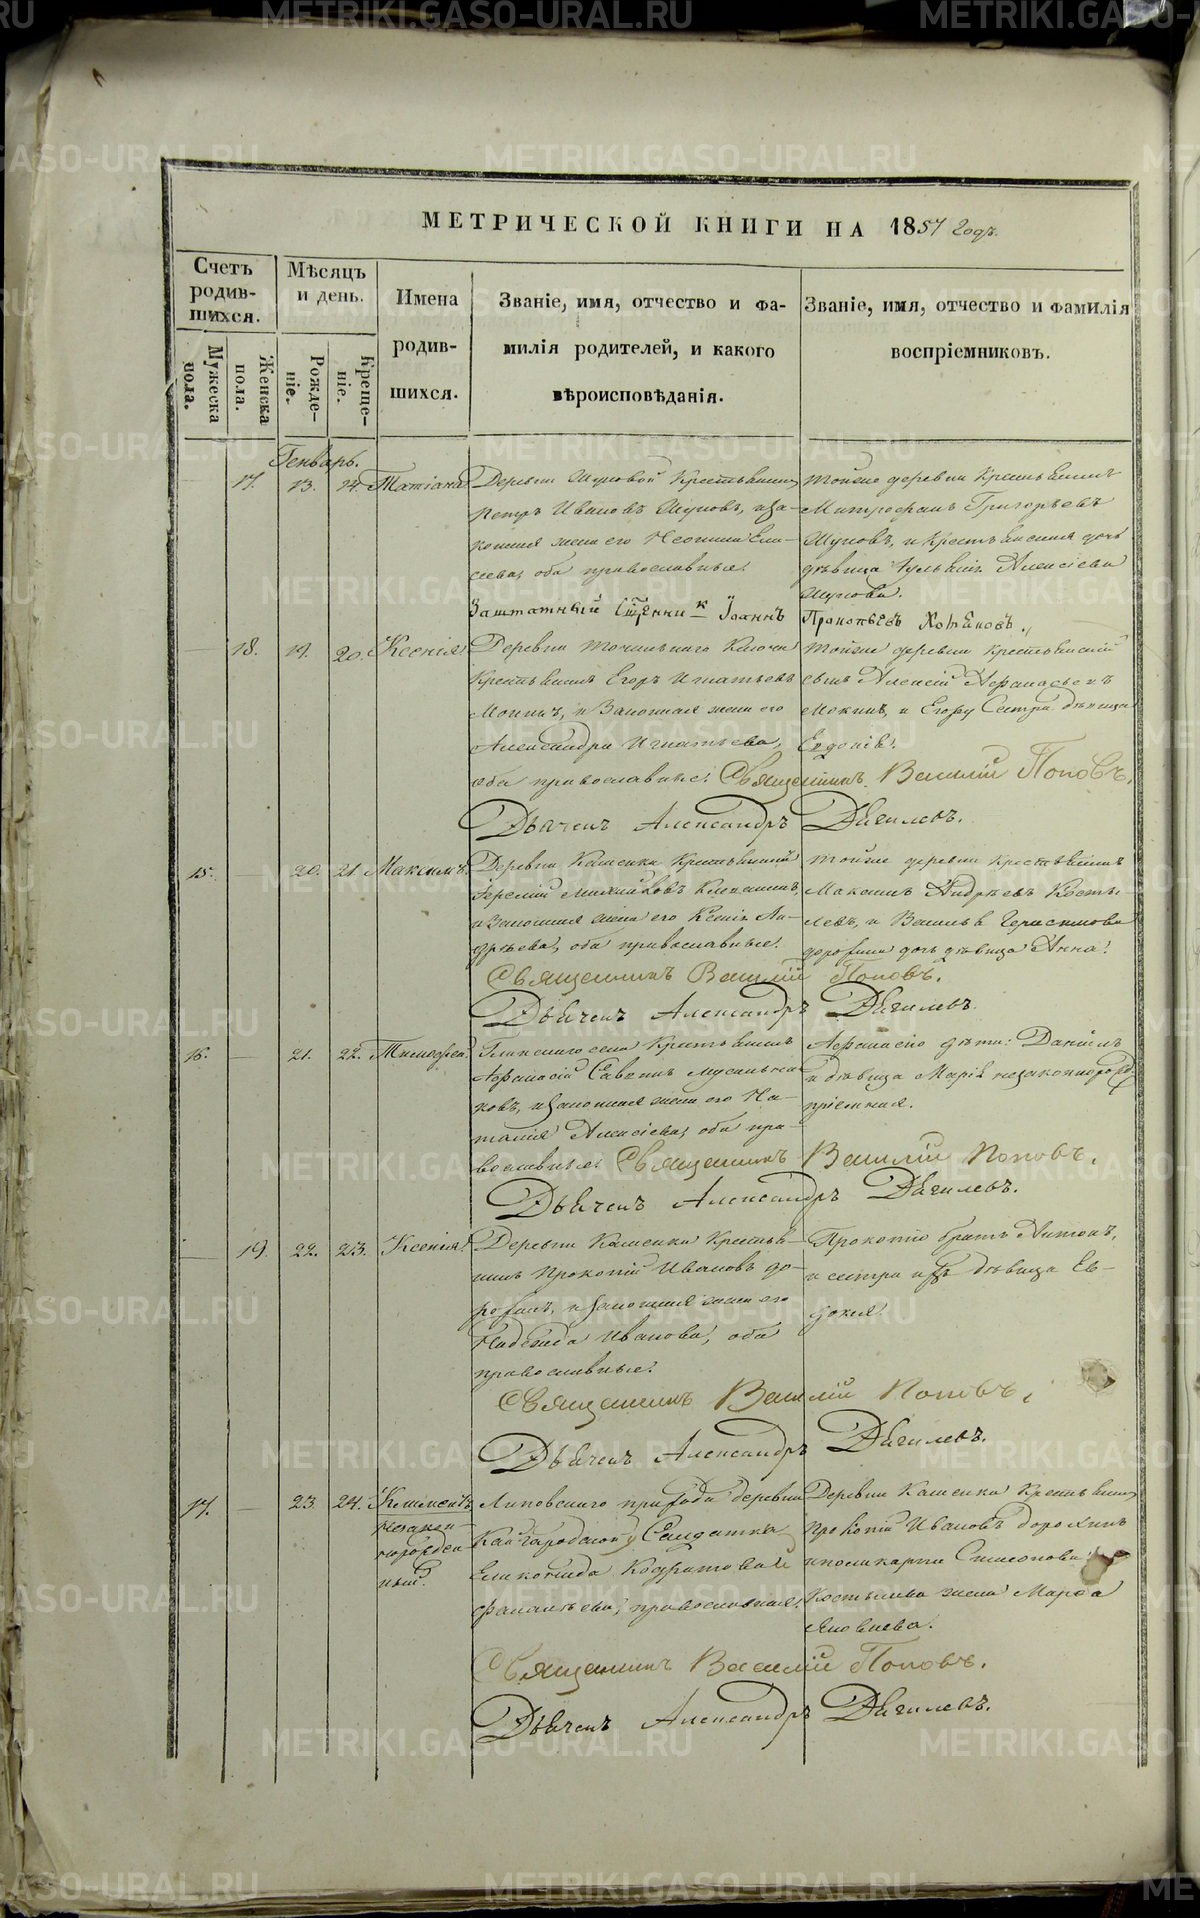 МЕТРИЧЕСКОЙ КНИГИ НА 1857 годъ.
Счетъ родив-шихся.
Мѣсяцъ и день.
Имена родив-шихся.
Званіе, имя, отчество и фа-
милія родителей, и какого
вѣроисповѣданія.
Званіе, имя, отчество и фамилія
воспріемниковъ.
Мужеска пола.
Женска пола.
Рожде-ніе.
Креще-ніе.
Генварь.
17. 13. 14. Татіана
Деревни Крестьянинъ
Петръ Ивановъ и за-
конная жена его
оба православные.
Тойже деревни Крестьянинъ
Митрофанъ Григорьевъ
и Крестьянская дочь
дѣвица Алексіева
Заштатный Сщенникъ Іоаннъ Прокопьевъ Хотѣновъ.
18. 19. 20. Ксенія
Деревни Точильнаго Ключа
Крестьянинъ Егоръ Игнатьевъ
Мокинъ, и Законная жена его
Александра Игнатьева,
оба православные.
Тойже деревни крестьянскій
сынъ Алексій Афанасьевъ
Мокинъ, и Егору Сестра дѣвица
Евдокія.
Священникъ Василій Поповъ.
Дьячекъ Александръ Дягилевъ.
15. 20. 21. Максимъ.
Деревни Каменки Крестьянинъ
и Законная жена его Ксенія Ан-
дреева, оба православные.
Тойже деревни Крестьянинъ
Максимъ Андреевъ Косты-
левъ, и Василья Герасимова
дорофина дочь дѣвица Анна.
Священникъ Василій Поповъ.
Дьячекъ Александръ Дягилевъ.
16. 21. 22. Тимофей.
Глинскаго села Крестьянинъ
Афанасій Саввинъ
и законная жена его На-
талія Алексіева, оба пра-
вославные.
Афанасію дѣти: Даніилъ
и дѣвица Марія незаконнорожд.
пріемная.
Священникъ Василій Поповъ.
Дьячекъ Александръ Дягилевъ.
19. 22. 23. Ксенія.
Деревни Каменки Крестья-
нинъ Прокопій Ивановъ до-
рофинъ, и законная жена его
Надежда Иванова, оба
православные.
Прокопію братъ Антонъ,
и сестра ихъ дѣвица Ев-
докія.
Священникъ Василій Поповъ.
Дьячекъ Александръ Дягилевъ.
17. 23. 24. Климентъ
незакон-
норожден
ный.
Липовскаго прихода деревни
Кайгородской Солдатка
православная.
Деревни Каменки Крестьянинъ
Прокопій Ивановъ дорофинъ
и поликарпа Симеонова
Костылева жена Марѳа
Яковлева.
Священникъ Василій Поповъ.
Дьячекъ Александръ Дягилевъ.
METRIKI.GASO-URAL.RU